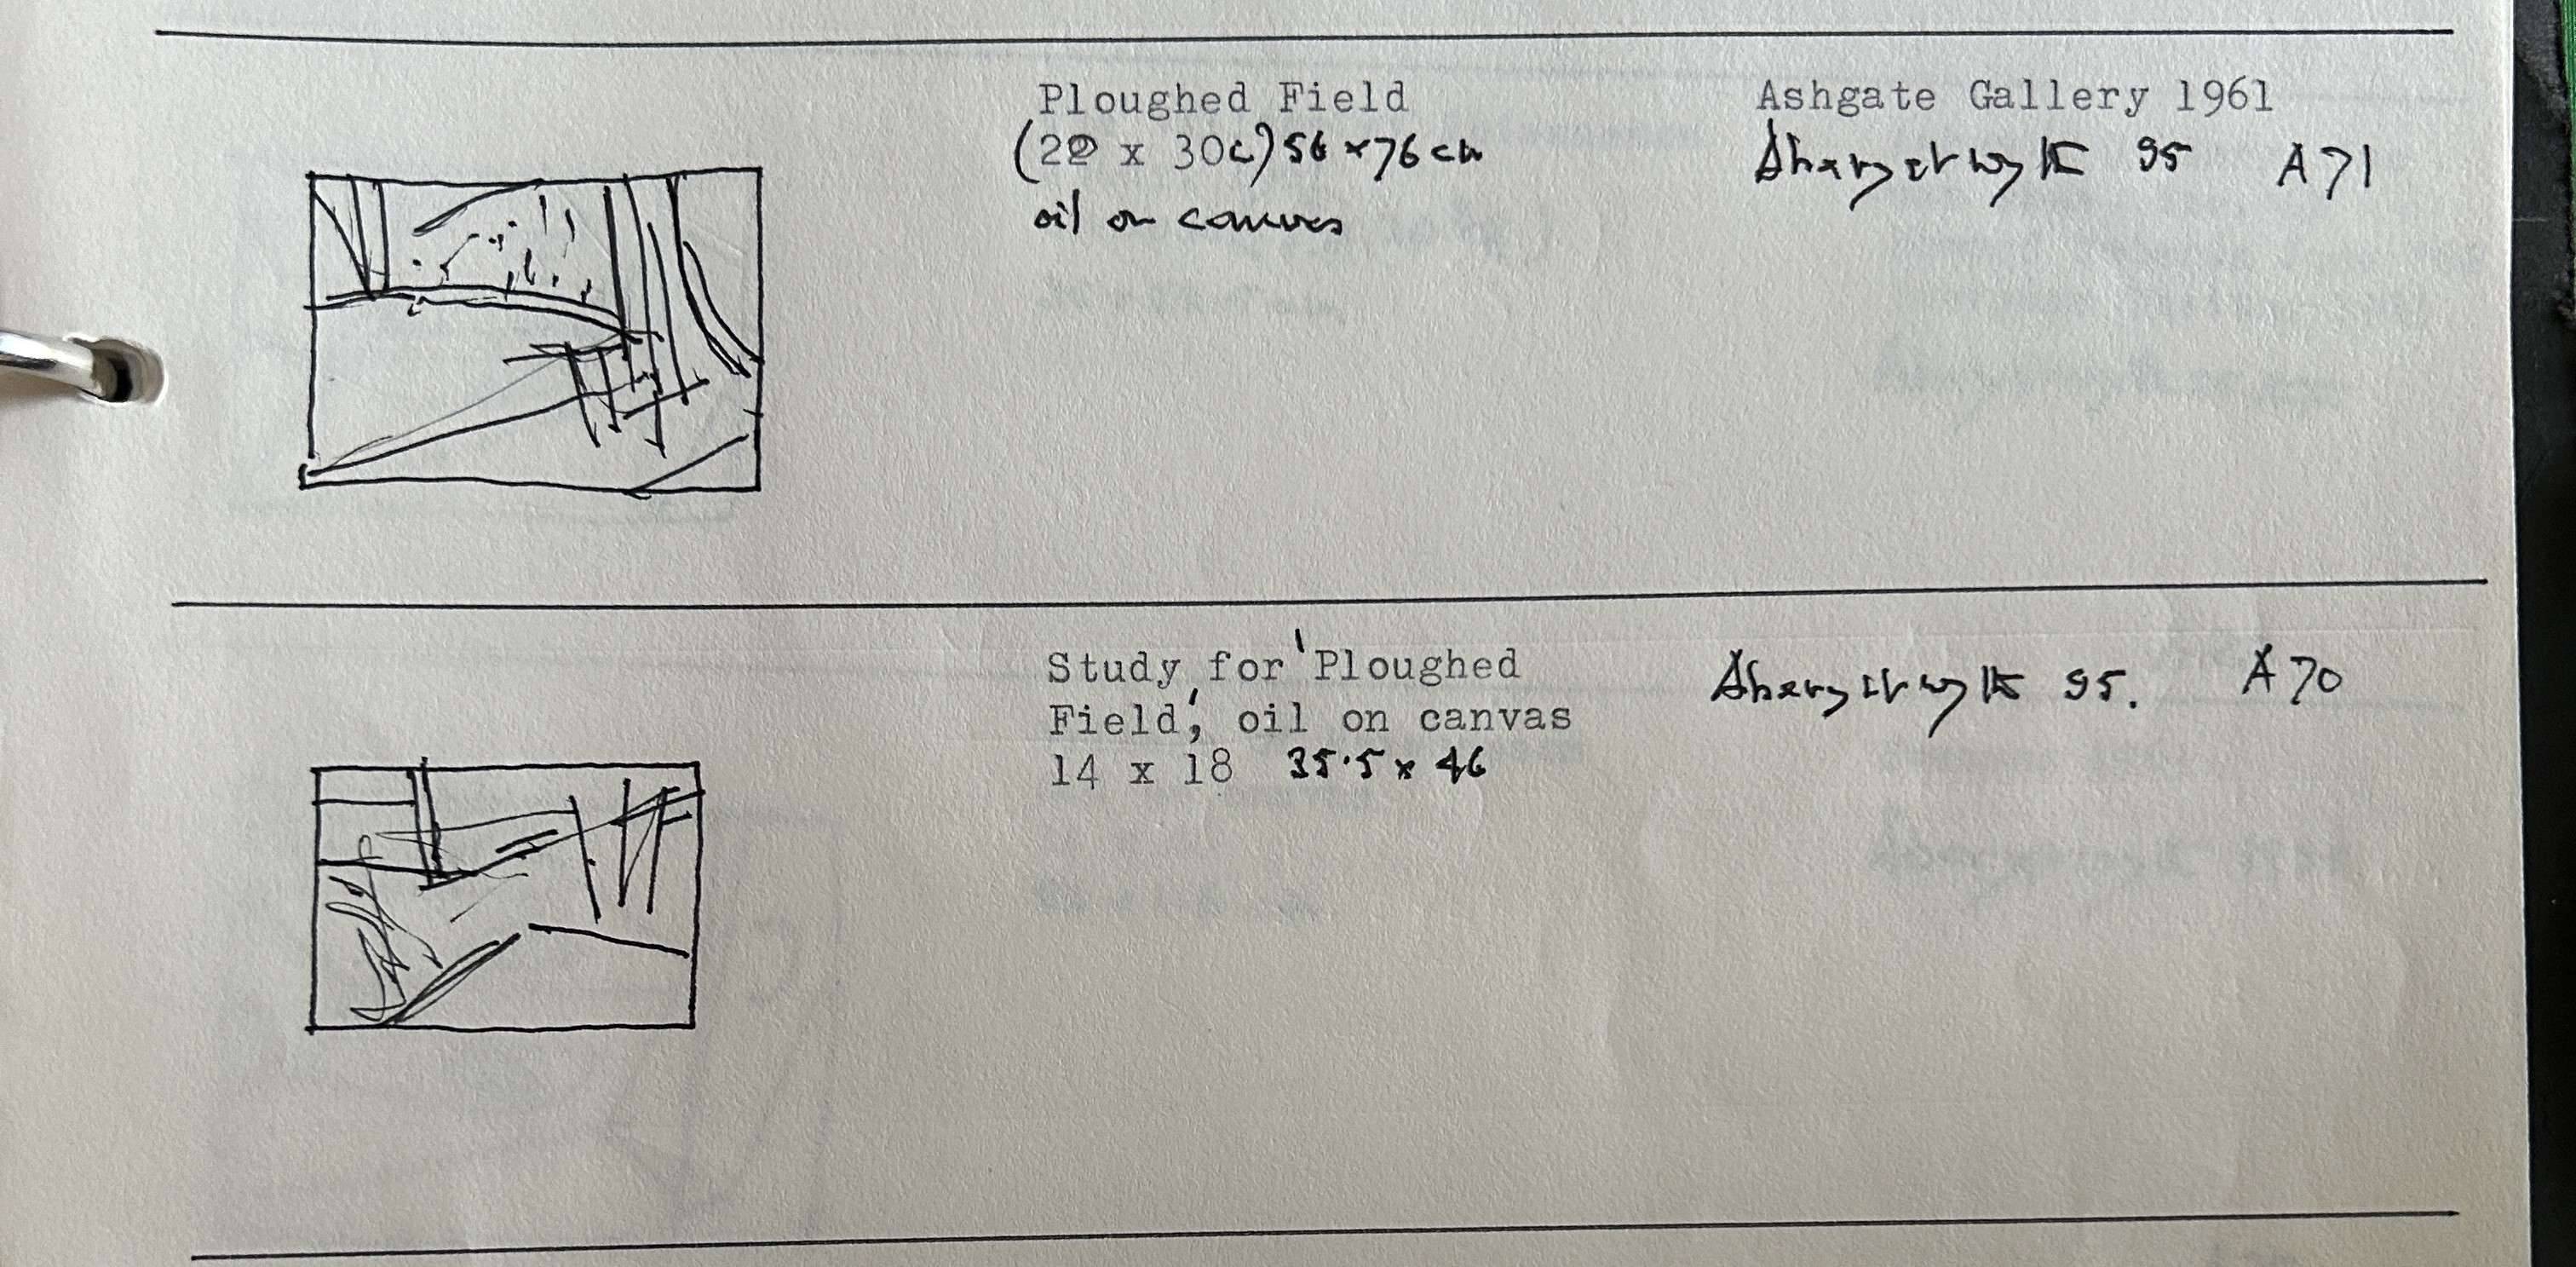 Ploughed Field
(22 x 30c) 56 x 76 cm
oil on canvas
Ashgate Gallery 1961
Aberystwyth 95 A71
Study for 'Ploughed
Field', oil on canvas
14 x 18 35.5 x 46
Aberystwyth 95. A70